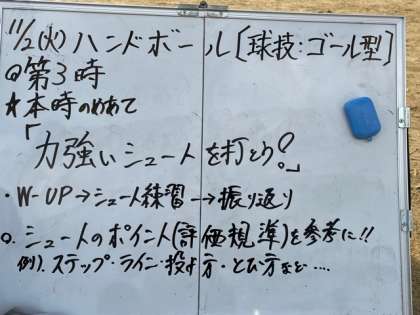 11/2(火)ハンドボール[球技:ゴール型]
◎第3時
★本時のめあて
「力強いシュートを打とう!」
・W-UP→シュート練習→振り返り
◎.シュートのポイント(評価規準)を参考に!!
例).ステップ・ライン・投げ方・とび方など....